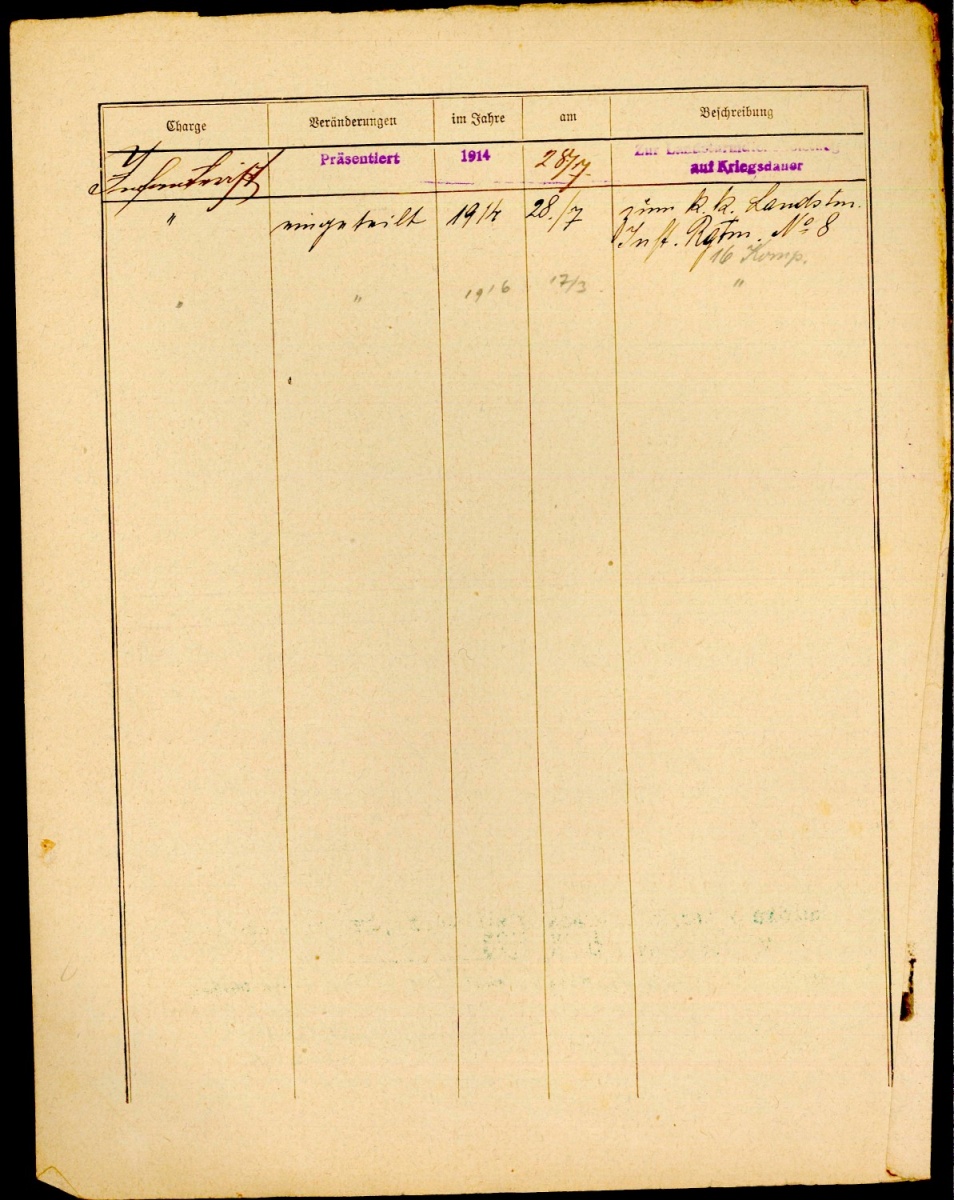 Charge Veränderungen im Jahre am Beschreibung
Infanterist Präsentiert 1914 28/7. Zur
auf Kriegsdauer
" eingeteilt 1914 28./7 zum k. k. Landstm.
Inft. Rgtm. No 8
16 Komp.
" " 1916 17/3. "